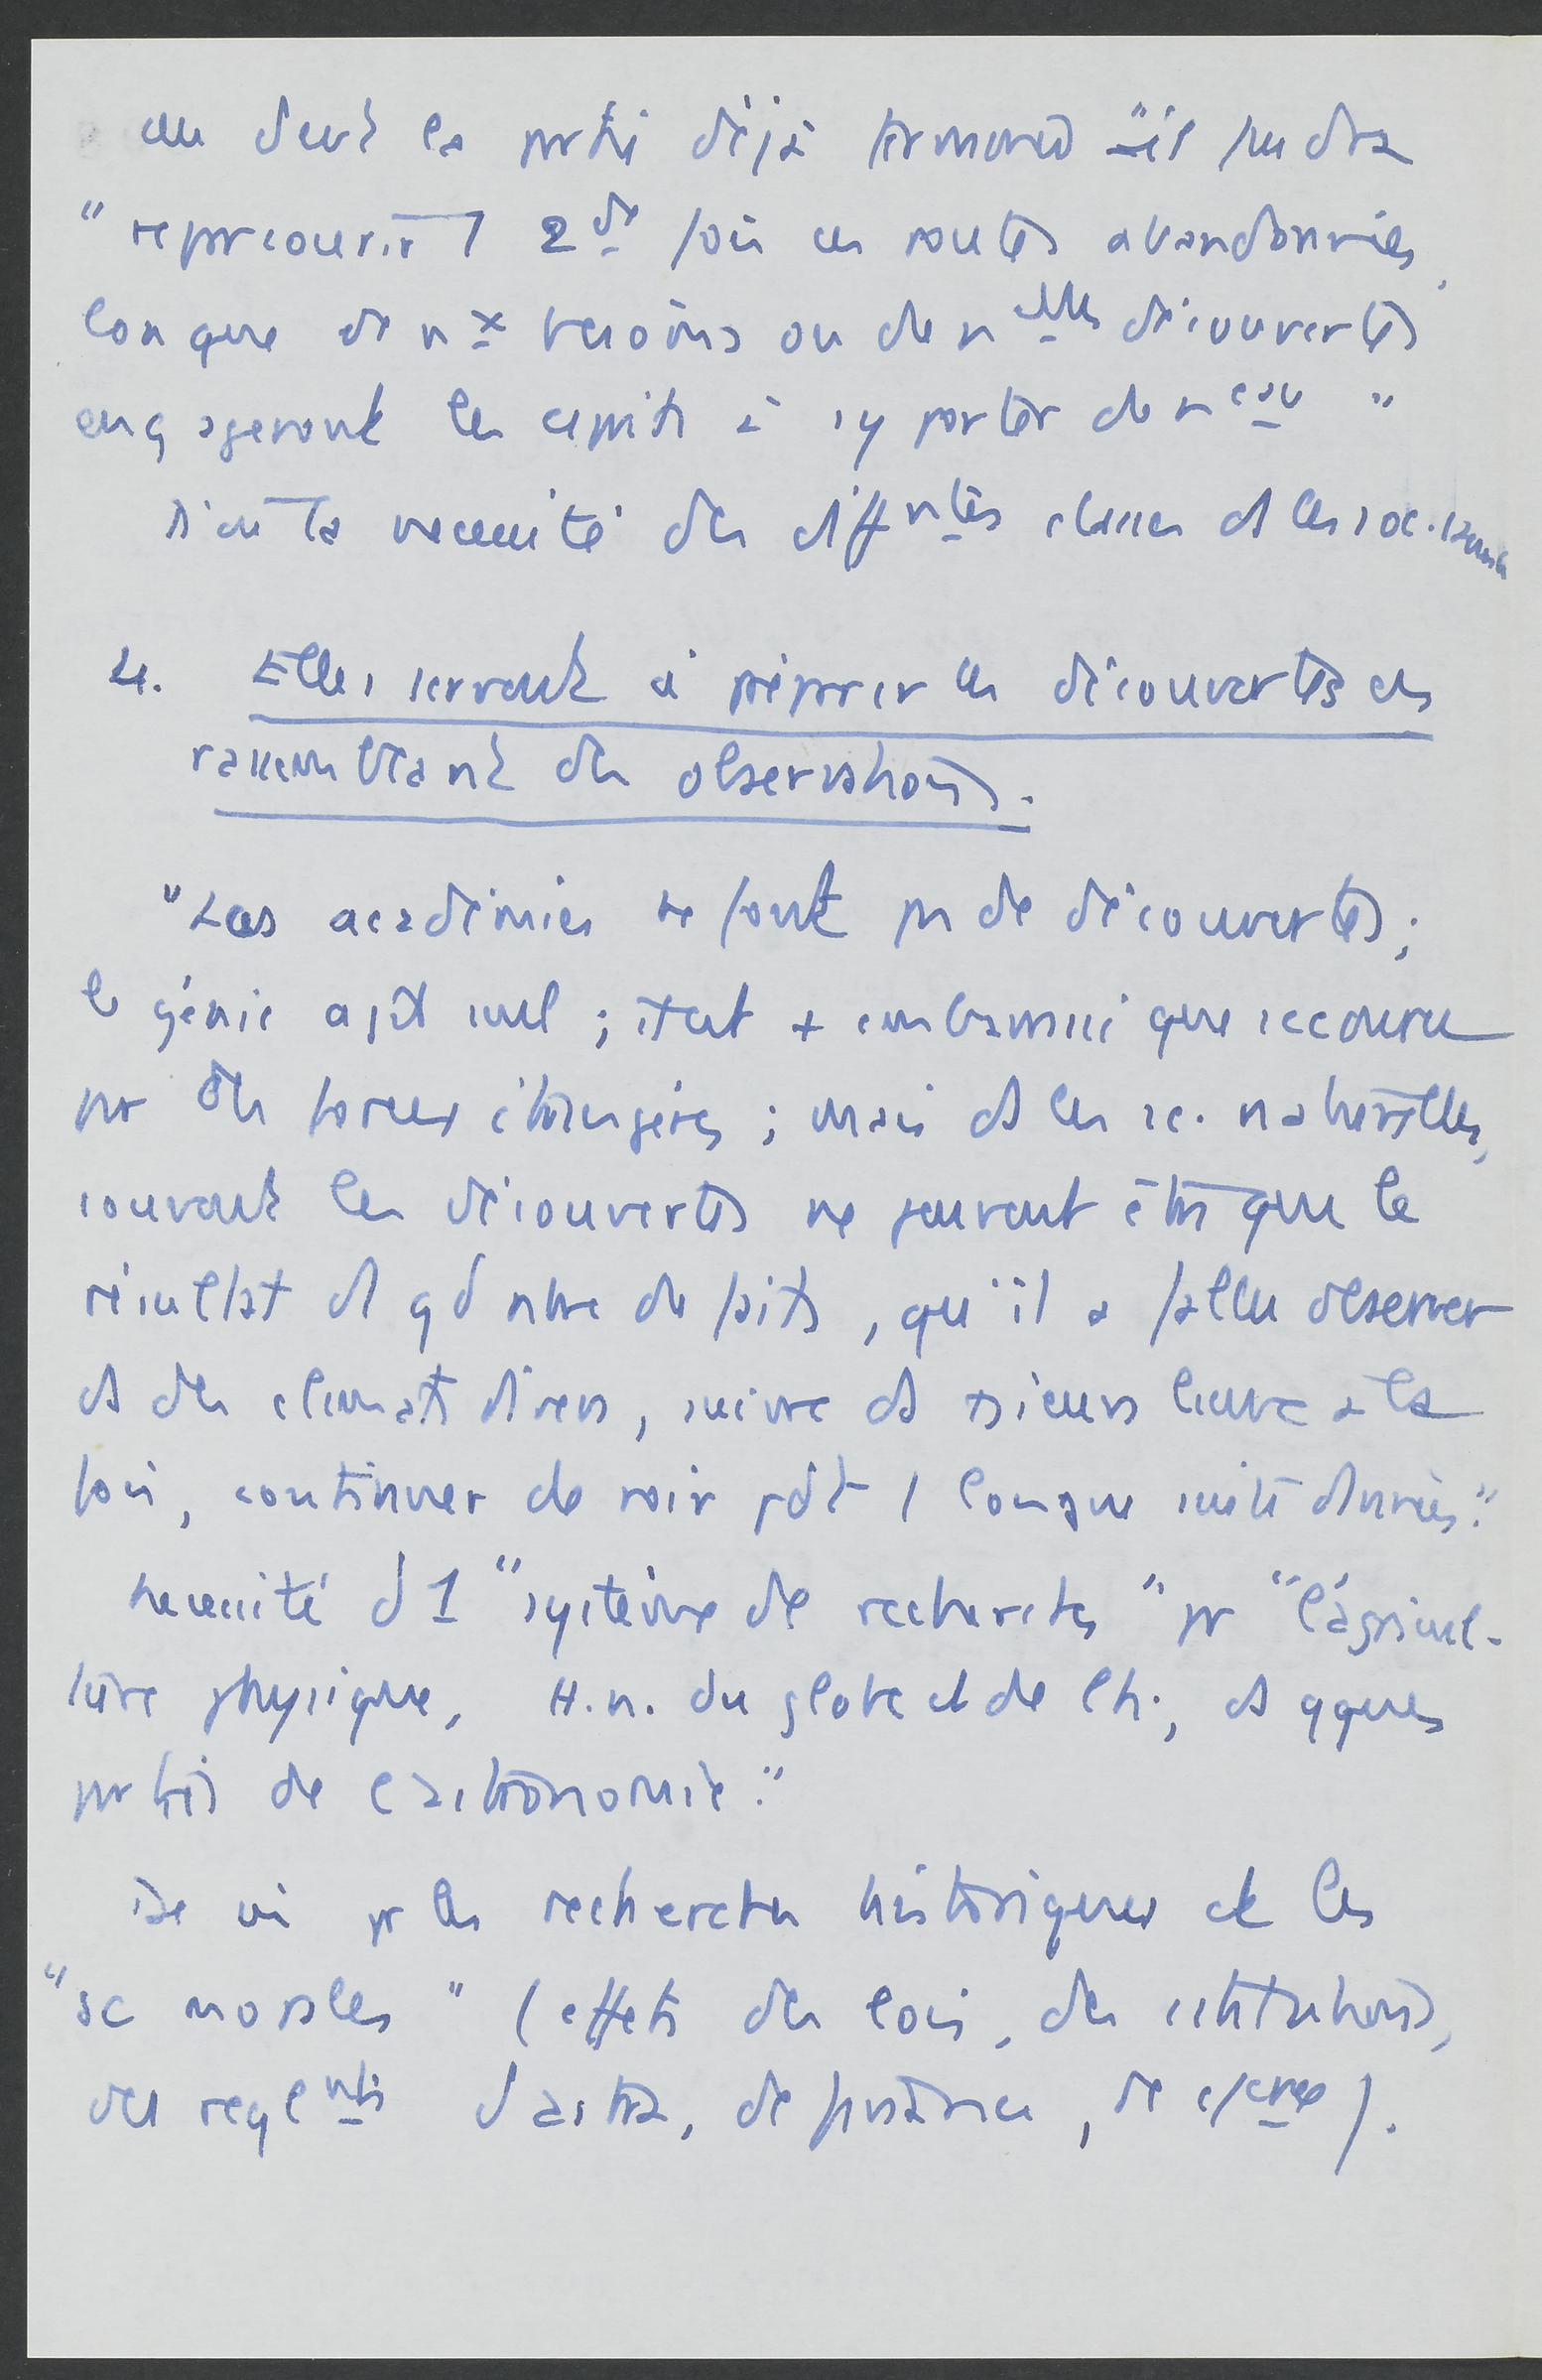 en dont la partie déjà parcourue il faudra
" reparcourir 1 2de fois ces routes abandonnées,
lorsque de nx besoins ou de nelles découvertes
engageront les esprits à s'y porter de neau "
D'où la nécessité des diffntes classes ds les soc. savantes
4. Elles servent à préparer les découvertes en
rassemblant des observations.
"Les académies ne font pas de découvertes ;
le génie agit seul ; il est + embarrassé que secouru
par des forces étrangères ; mais ds les sc. naturelles,
souvent les découvertes ne peuvent être que le
résultat d'1 gd nbre de faits, qu'il a fallu observer
ds des climats divers, suivre ds plsieurs lieux à la
fois, continuer de voir pdt 1 longue suite d'années."
Nécessité d'1 "système de recherches" pr "l'agricul-
ture physique, H.n. du globe et de l'h., ds qques
parties de l'astronomie."
De m̂ pr les recherches historiques et les
"sc morales" (effets des lois, des institutions,
des règlnts d'astra, de finances, de cerce).